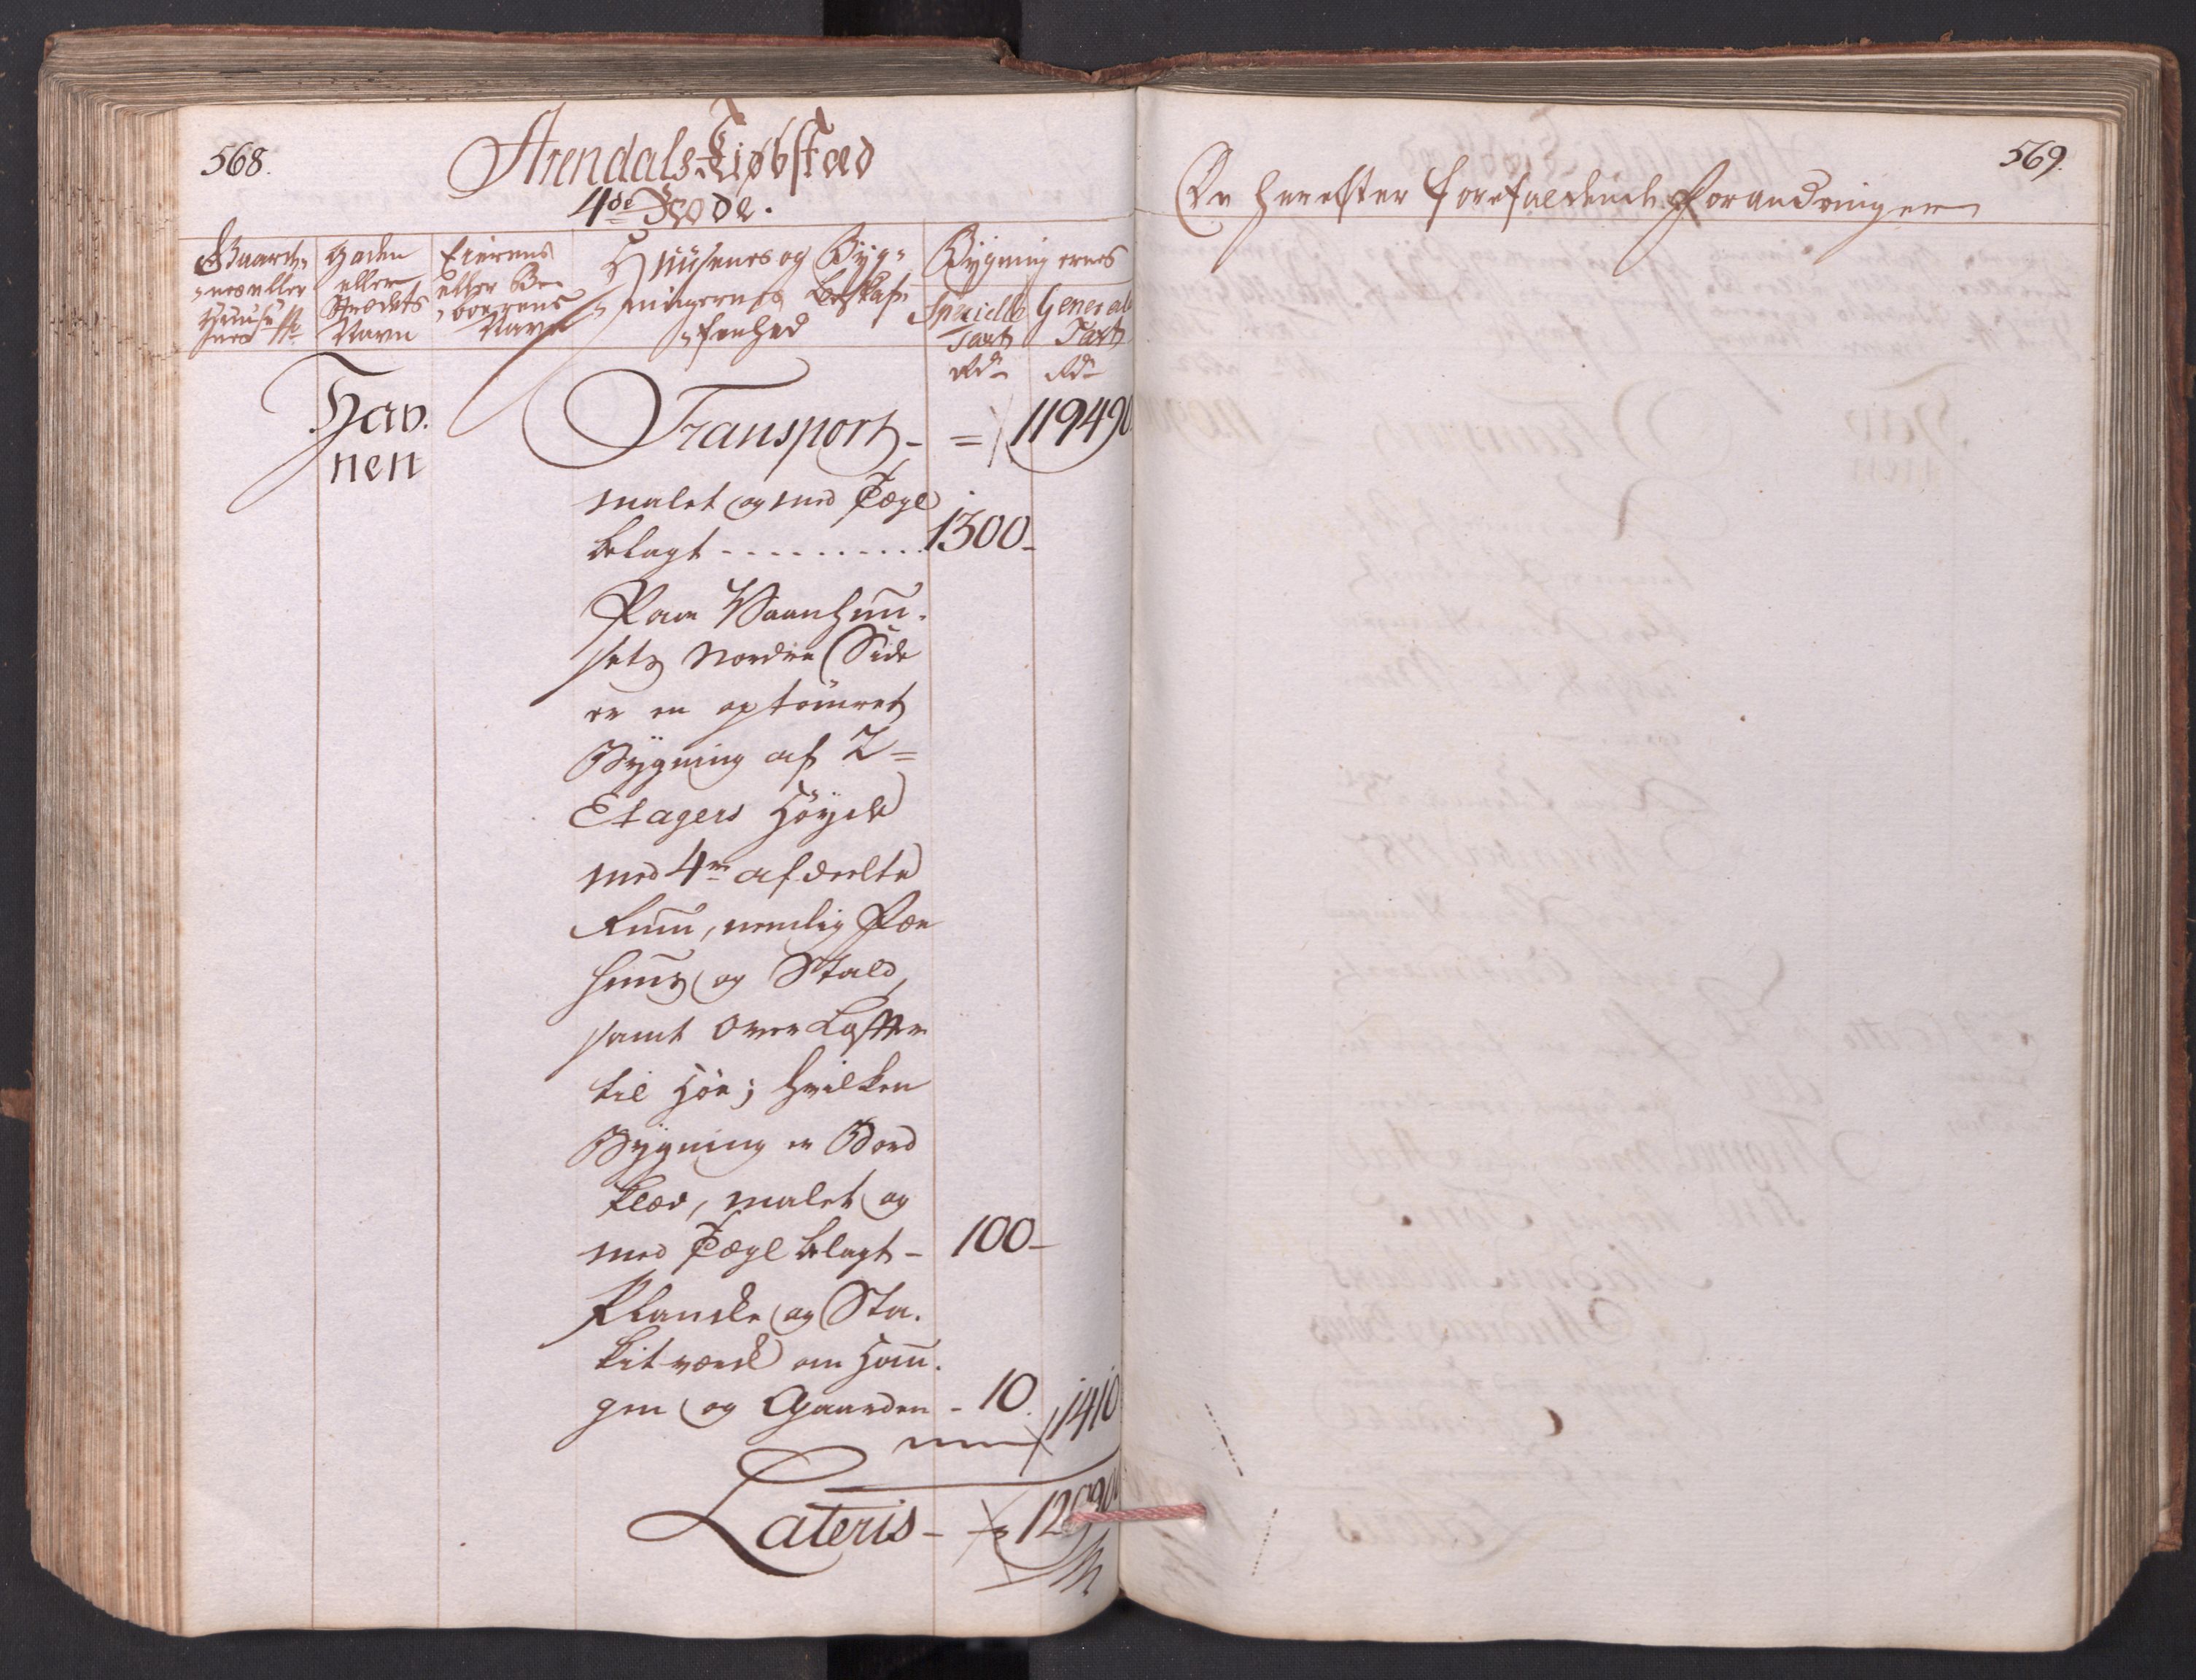 568.
Arendals Kiøbstæd
4de Rode.
Gaarde-
nes eller
Huuse-
nes No
Gaden
eller
Strædets
Navn
Eierens
eller Be-
boerens
Navn
Huusenes og Byg-
ningernes Beskaf-
fenhed
Bygningernes
Specielle Taxt
Generale Taxt
Rdr
Rdr
Hav-
nen
Transport - = 119490
malet og med Tægl
belagt - - - - - - - - - - 1300-
Paa Vaanhuu-
sets Nordre Side
er en optömret
Bygning af 2=
Etagers Höyde
med 4re afdeelte
Rum, nemlig Fæe
huus og Stald,
samt Over Lofter
til Höe; hvilken
Bygning er Bord
klæd, malet og
med Tægl belagt - 100-
Plancke og Sta-
kitværck om Hau-
gen og Gaarden - 10. 1410
Lateris - 120900
569.
De herefter forefaldende Forandringer